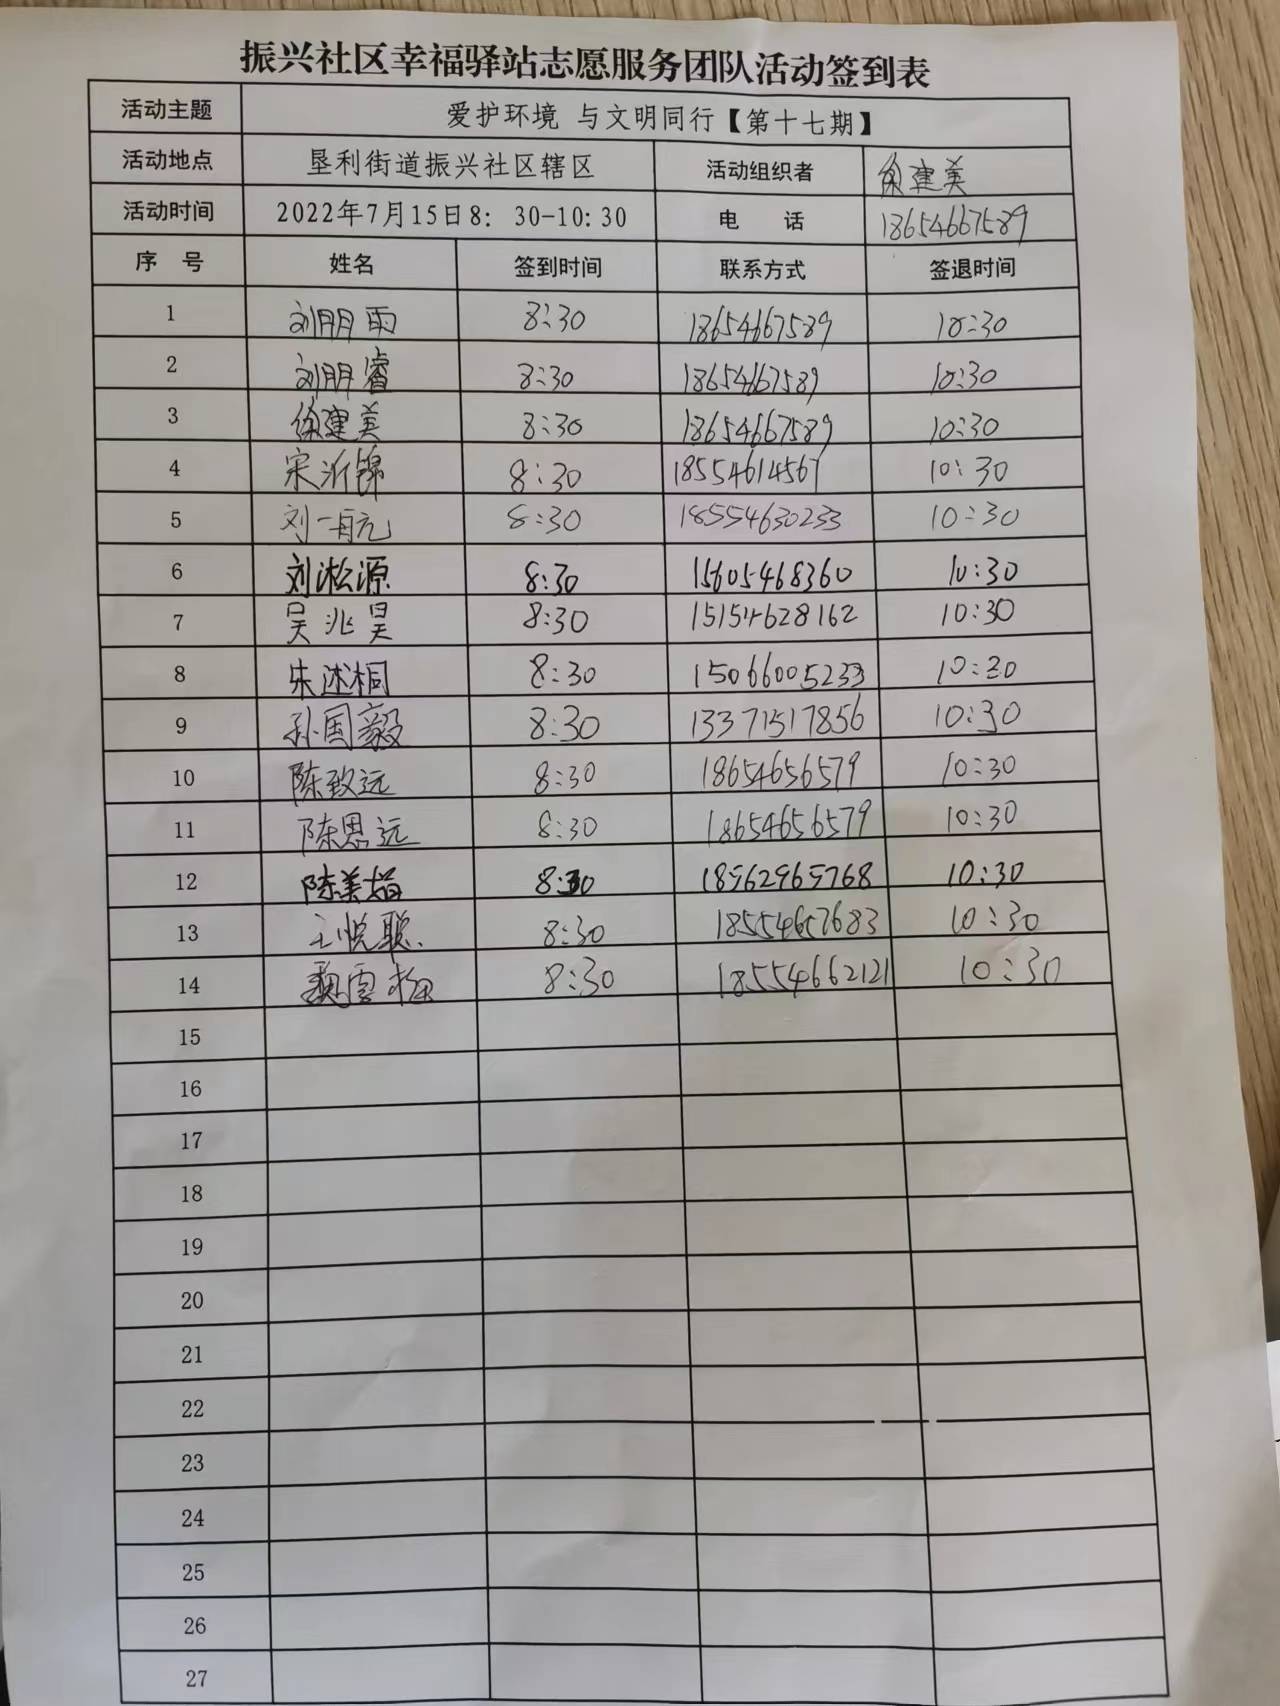 振兴社区幸福驿站志愿服务团队活动签到表
活动主题 爱护环境 与文明同行【第十七期】
活动地点 垦利街道振兴社区辖区 活动组织者 徐建美
活动时间 2022年7月15日8：30-10:30 电 话 18654667589
序 号 姓名 签到时间 联系方式 签退时间
1 刘朋雨 8:30 18654667589 10:30
2 刘朋睿 8:30 18654667589 10:30
3 徐建美 8:30 18654667589 10:30
4 宋沂锦 8:30 18554614567 10:30
5 刘一元 8:30 18554630233 10:30
6 刘淞源 8:30 15605468360 10:30
7 吴兆昊 8:30 15154628162 10:30
8 朱述桐 8:30 15066005233 10:20
9 孙国毅 8:30 13371517856 10:30
10 陈致远 8:30 18654656579 10:30
11 陈思远 8:30 18654656579 10:30
12 陈美 8:30 18562965768 10:30
13 王悦聪 8:30 18554657683 10:30
14 魏雪梅 8:30 18554662121 10:30
15
16
17
18
19
20
21
22
23
24
25
26
27